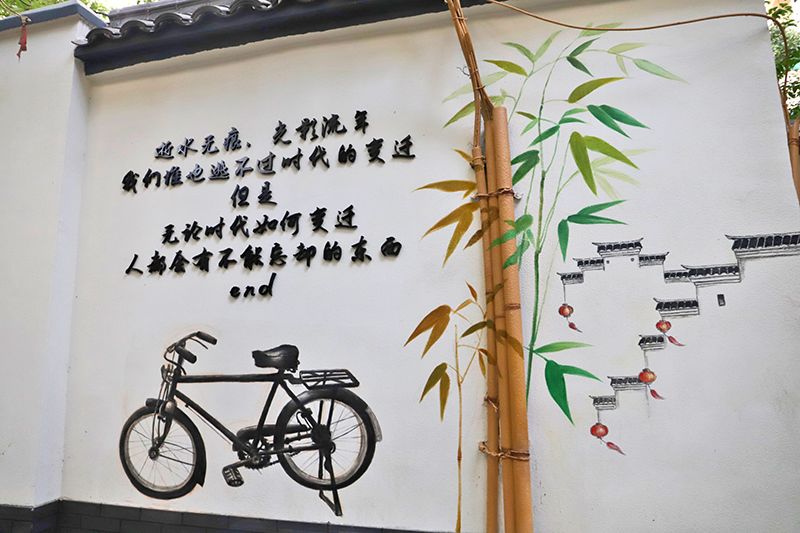 逝水无痕、光影流年
我们谁也逃不过时代的变迁
但是
无论时代如何变迁
人都会有不能忘却的东西
end